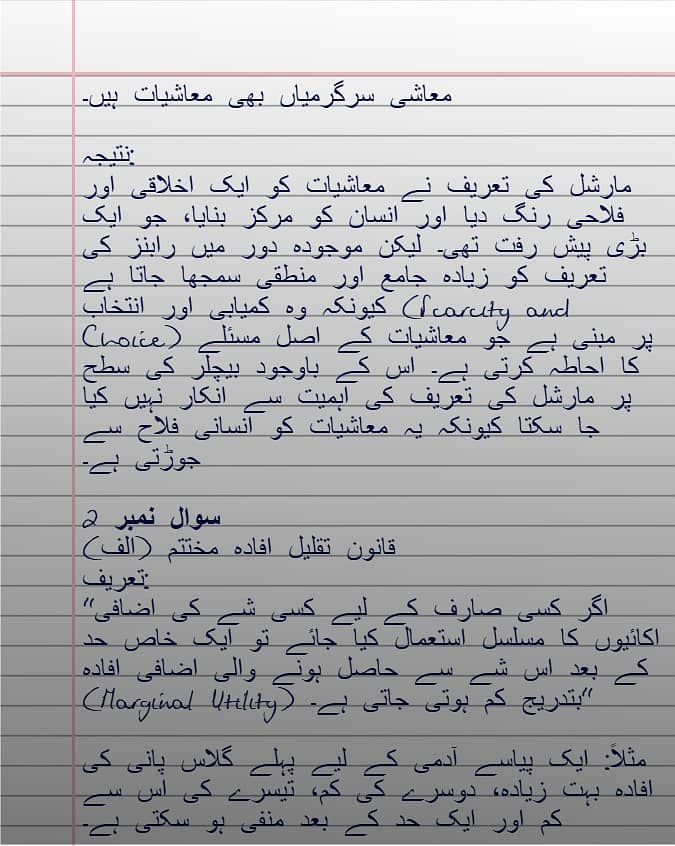 معاشی سرگرمیاں بھی معاشیات ہیں۔
نتیجہ:
مارشل کی تعریف نے معاشیات کو ایک اخلاقی اور
فلاحی رنگ دیا اور انسان کو مرکز بنایا، جو ایک
بڑی پیش رفت تھی۔ لیکن موجودہ دور میں رابنز کی
تعریف کو زیادہ جامع اور منطقی سمجھا جاتا ہے
کیونکہ وہ کمیابی اور انتخاب (Scarcity and
Choice) پر مبنی ہے جو معاشیات کے اصل مسئلے
کا احاطہ کرتی ہے۔ اس کے باوجود بیچلر کی سطح
پر مارشل کی تعریف کی اہمیت سے انکار نہیں کیا
جا سکتا کیونکہ یہ معاشیات کو انسانی فلاح سے
جوڑتی ہے۔
سوال نمبر 2
(الف) قانون تقلیل افادہ مختتم
تعریف:
"اگر کسی صارف کے لیے کسی شے کی اضافی
اکائیوں کا مسلسل استعمال کیا جائے تو ایک خاص حد
کے بعد اس شے سے حاصل ہونے والی اضافی افادہ
(Marginal Utility) بتدریج کم ہوتی جاتی ہے۔"
مثلاً: ایک پیاسے آدمی کے لیے پہلے گلاس پانی کی
افادہ بہت زیادہ، دوسرے کی کم، تیسرے کی اس سے
کم اور ایک حد کے بعد منفی ہو سکتی ہے۔